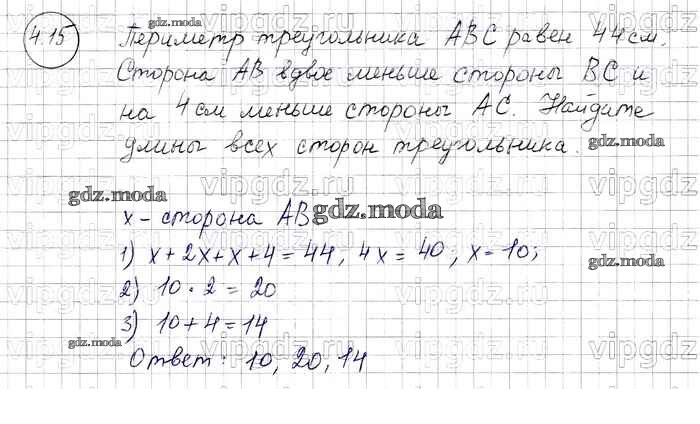 4.15
gdz.moda
Периметр треугольника ABC равен 44 см.
Сторона AB вдвое меньше стороны BC и
на 4 см меньше стороны AC. Найдите
длины всех сторон треугольника.
gdz.moda
gdz.moda
x - сторона AB
gdz.moda
1) x + 2x + x + 4 = 44, 4x = 40; x = 10;
gdz.moda
2) 10 · 2 = 20
3) 10 + 4 = 14
gdz.moda
Ответ: 10, 20, 14
vipgdz.ru
vipgdz.ru
vipgdz.ru
vipgdz.ru
vipgdz.ru
vipgdz.ru